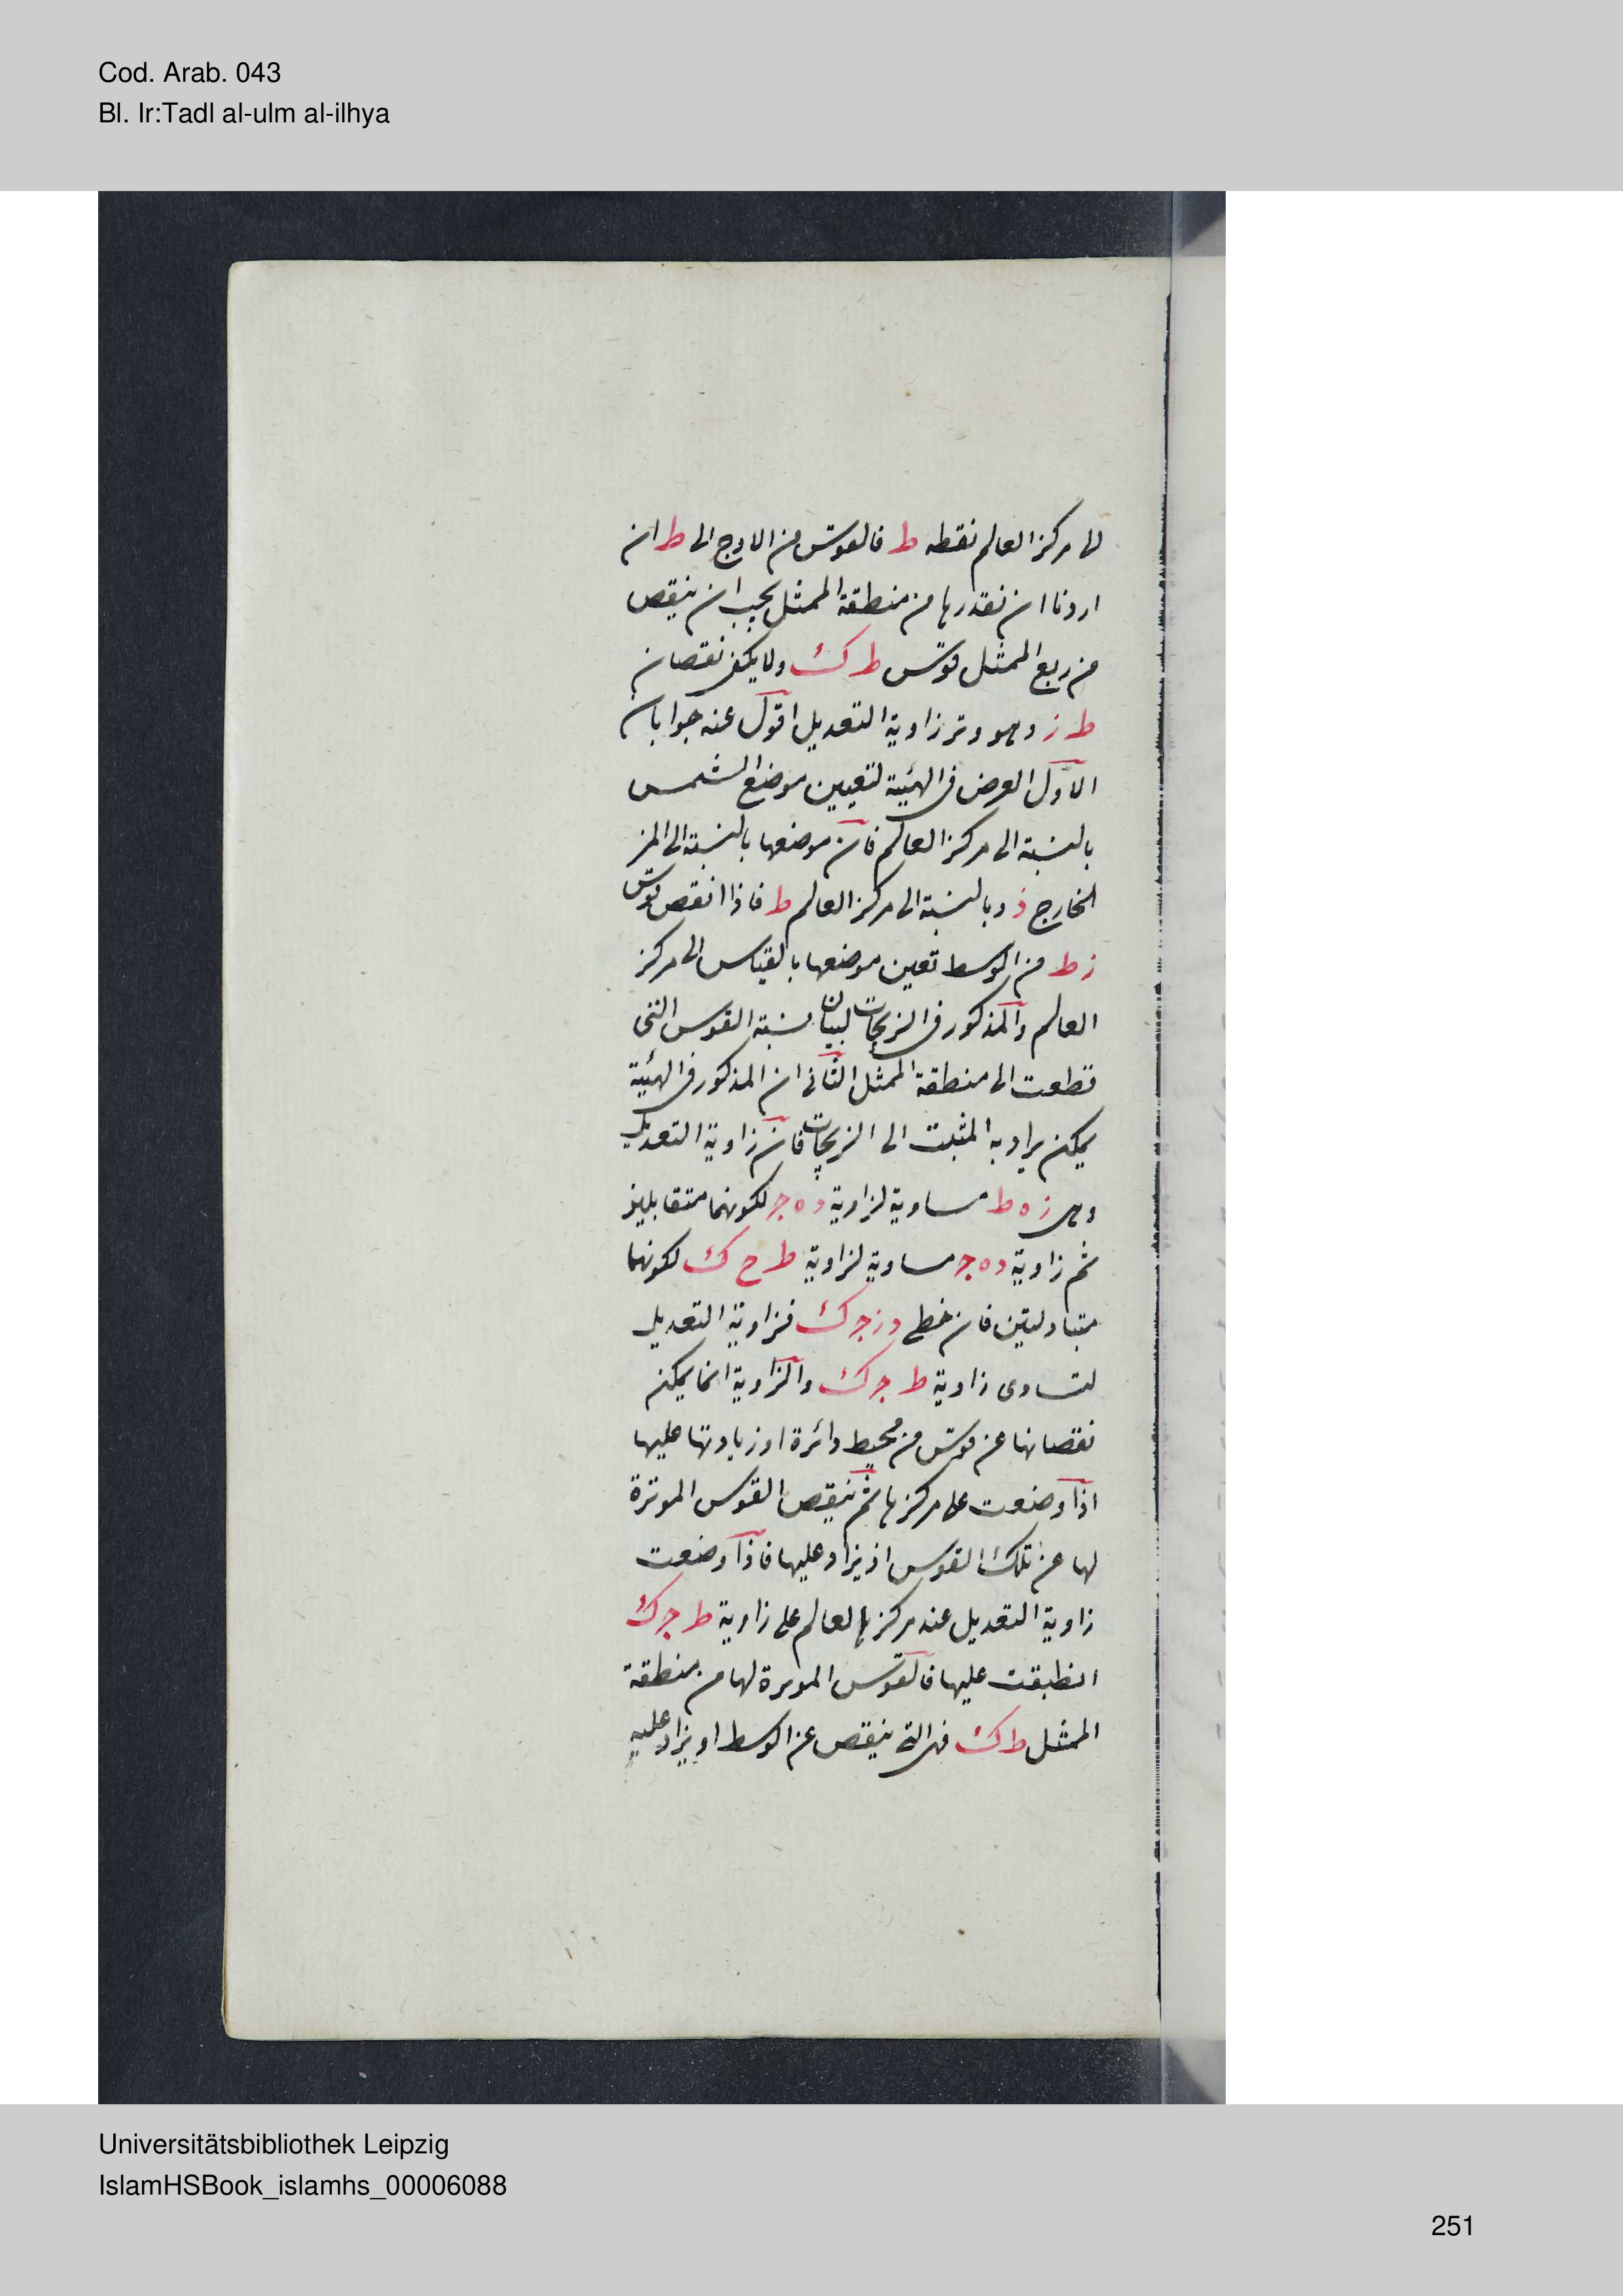 Cod. Arab. 043
Bl. Ir:Tadl al-ulm al-ilhya
الى مركز العالم نقطه ط فالقوس من الاوج الى ط ان
اردنا ان نقدرها من منطقة الممثل يجب ان ينقص
من ربع الممثل قوس ط ك ولا يكفى نقصان
ط ز وهو وتر زاوية التعديل اقول عنه جوابان
الاول الغرض فى الهيئة لتعيين موضع الشمس
بالنسبة الى مركز العالم فان موضعها بالنسبة الى المز
الخارج ز وبالنسبة الى مركز العالم ط فاذا انقص قوس
ز ط من الوسط تعين موضعها بالقياس الى مركز
العالم والمذكور فى الزيجات لبيان نسبة القوس التى
قطعت الى منطقة الممثل الثانى ان المذكور فى الهيئة
يمكن يراد به المثبت الى الزيجات فان زاوية التعديل
وهى ز ه ط مساوية لزاوية د ه ج لكونهما متقابلين
ثم زاوية د ه ج مساوية لزاوية ط ح ك لكونهما
متبادلتين فان خطى د ز ج ك فزاوية التعديل
لتساوى زاوية ط ج ك والزاوية انما يمكن
نقصانها عن قوس من محيط دائرة او زيادتها عليها
اذا وضعت على مركزها ثم ينقص القوس الموترة
لها عن تلك القوس اذ يزاد عليها فاذا وضعت
زاوية التعديل عند مركزها العالم على زاوية ط ج ك
انطبقت عليها فالقوس الموترة لها من منطقة
الممثل ط ك فهى التى ينقص عن الوسط او يزاد عليه
Universitätsbibliothek Leipzig
IslamHSBook_islamhs_00006088
251